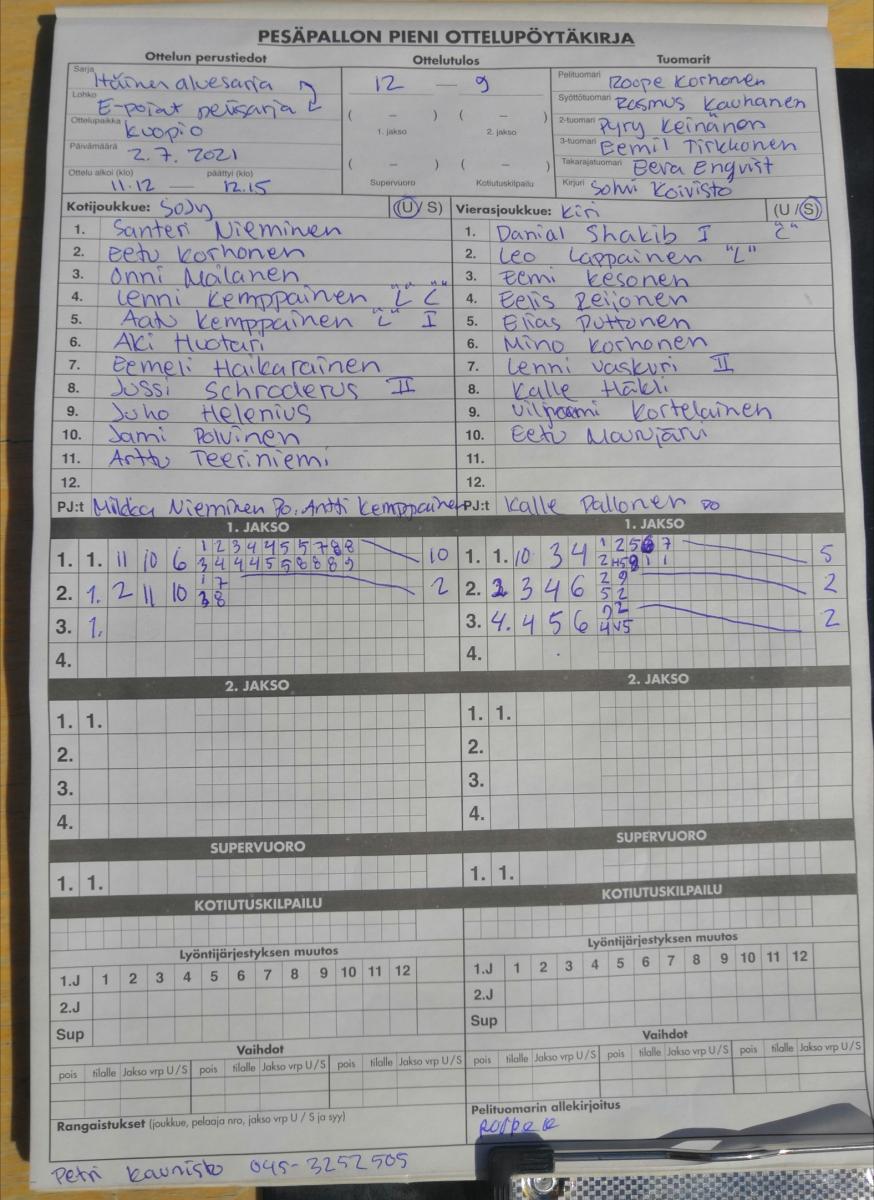 PESÄPALLON PIENI OTTELUPÖYTÄKIRJA
Ottelun perustiedot
Ottelutulos
Tuomarit
Sarja Itäinen aluesarja
Lohko E-pojat
Ottelupaikka Kuopio
Päivämäärä 2.7.2021
Ottelu alkoi (klo) päättyi (klo)
11.12 — 12.15
12 — 9
( – ) ( – )
1. jakso 2. jakso
( – ) ( – )
Supervuoro Kotiutuskilpailu
Pelituomari Roope Korhonen
Syöttötuomari Rasmus Kauhanen
2-tuomari Pyry Keinänen
3-tuomari Eemil Tirkkonen
Takarajatuomari Eeva Enqvist
Kirjuri Sohvi Koivisto
Kotijoukkue: SoJy (U / S)
1. Santeri Nieminen
2. Eetu Korhonen
3. Onni Malanen
4. Lenni Kemppainen
5. Aatu Kemppainen "L" I
6. Aki Huotari
7. Eemeli Haikarainen
8. Jussi Schroderus II
9. Juho Helenius
10. Jami Polvinen
11. Arttu Teeriniemi
12.
PJ:t Miikka Nieminen Po. Antti Kemppainen
Vierasjoukkue: Kiri (U / S)
1. Danial Shakib I
2. Leo Lappainen "L"
3. Eemi Kesonen
4. Eelis Reijonen
5. Elias Puttonen
6. Mino Korhonen
7. Lenni Vaskuri II
8. Kalle Häkli
9. Viljami Kortelainen
10. Eetu
11.
12.
PJ:t Kalle Pallonen PO
1. JAKSO
1. 1. 11 10 6 1 2 3 4 4 5 5 7 8 8 10
3 4 4 4 5 5 8 8 8 9
2. 1. 2 11 10 1 7 2
3 8
3. 1.
4.
1. JAKSO
1. 1. 10 3 4 1 2 5 7 5
2. 3 4 6 2 9 2
5 2
3. 4. 4 5 6 2
4.
2. JAKSO
1. 1.
2.
3.
4.
2. JAKSO
1. 1.
2.
3.
4.
SUPERVUORO
1. 1.
SUPERVUORO
1. 1.
KOTIUTUSKILPAILU
KOTIUTUSKILPAILU
Lyöntijärjestyksen muutos
1.J 1 2 3 4 5 6 7 8 9 10 11 12
2.J
Sup
Lyöntijärjestyksen muutos
1.J 1 2 3 4 5 6 7 8 9 10 11 12
2.J
Sup
Vaihdot
pois tilalle Jakso vrp U / S pois tilalle Jakso vrp U / S pois tilalle Jakso vrp U / S
Vaihdot
pois tilalle Jakso vrp U / S pois tilalle Jakso vrp U / S pois tilalle Jakso vrp U / S
Rangaistukset (joukkue, pelaaja nro, jakso vrp U / S ja syy)
Pelituomarin allekirjoitus
Petri Kaunisto 045-3252505